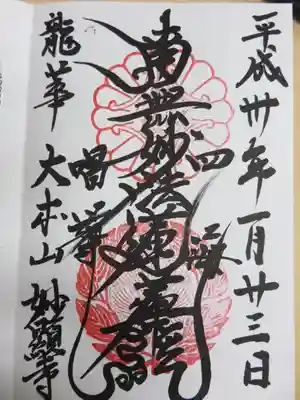 平成卅年一月廿三日
四海
南無妙法蓮華経
唱導
龍華
大本山 妙顯寺